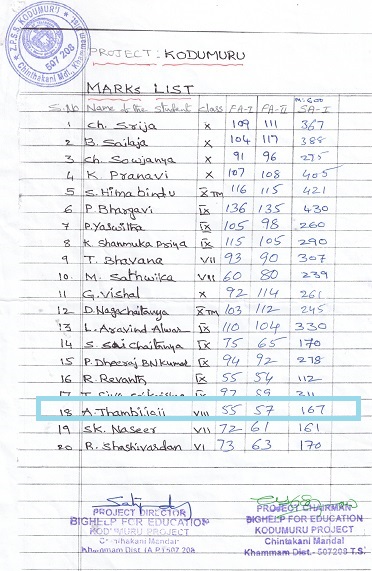 Z.P.S.S. KODUMURU
Chinthakani Mdl., Khammam Dist.
507 208
PROJECT: KODUMURU
MARKS LIST
M:600
S.No Name of the student class FA-I FA-II SA-I
1 Ch. Srija X 109 111 367
2 B. Sailaja X 104 117 388
3 Ch. Sowjanya X 91 96 275
4 K. Pranavi X 107 108 405
5 S. Himabindu X TM 116 115 421
6 P. Bhargavi IX 136 135 430
7 P. Yaswitha IX 105 98 260
8 K. Shanmuka Priya IX 115 105 290
9 T. Bhavana VII 93 90 307
10. M. Sathwika VII 60 80 239
11 G. Vishal X 92 114 261
12 D. Nagachaitanya X TM 103 112 245
13 L. Aravind Alwar IX 110 104 330
14 S. Sai Chaitanya IX 75 65 170
15 P. Dheeraj BN Kumar IX 94 92 278
16 R. Revanth IX 55 54 112
17
18 A. Thambijiaji VIII 55 57 167
19 SK. Naseer VII 72 61 161
20 R. Shashivardan VI 73 63 170
PROJECT DIRECTOR
BIGHELP FOR EDUCATION
KODUMURU PROJECT
Chinthakani Mandal
Khammam Dist. (A.P.) 507 208
PROJECT CHAIRMAN
BIGHELP FOR EDUCATION
KODUMURU PROJECT
Chintakani Mandal
Khammam Dist.- 507208 T.S.